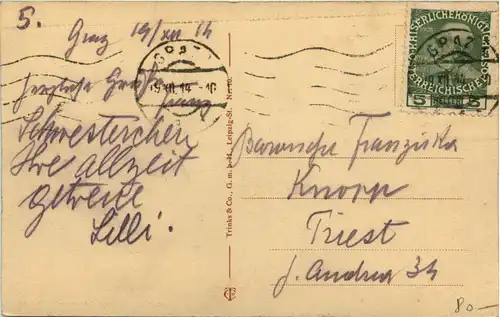 5.
Graz 19/XII 14
Herzliche Grüße
Schwesterchen
Ihre allzeit
getreue
Lilli.
GRAZ
19 XII 14
Trinks & Co., G. m. b. H., Leipzig-St.
KAISERLICHE KÖNIGLICHE
ÖSTERREICHISCHE POST
5 HELLER 5
GRAZ
Baronesse Franziska
Knorr
Triest
S. Andrea 34
80-